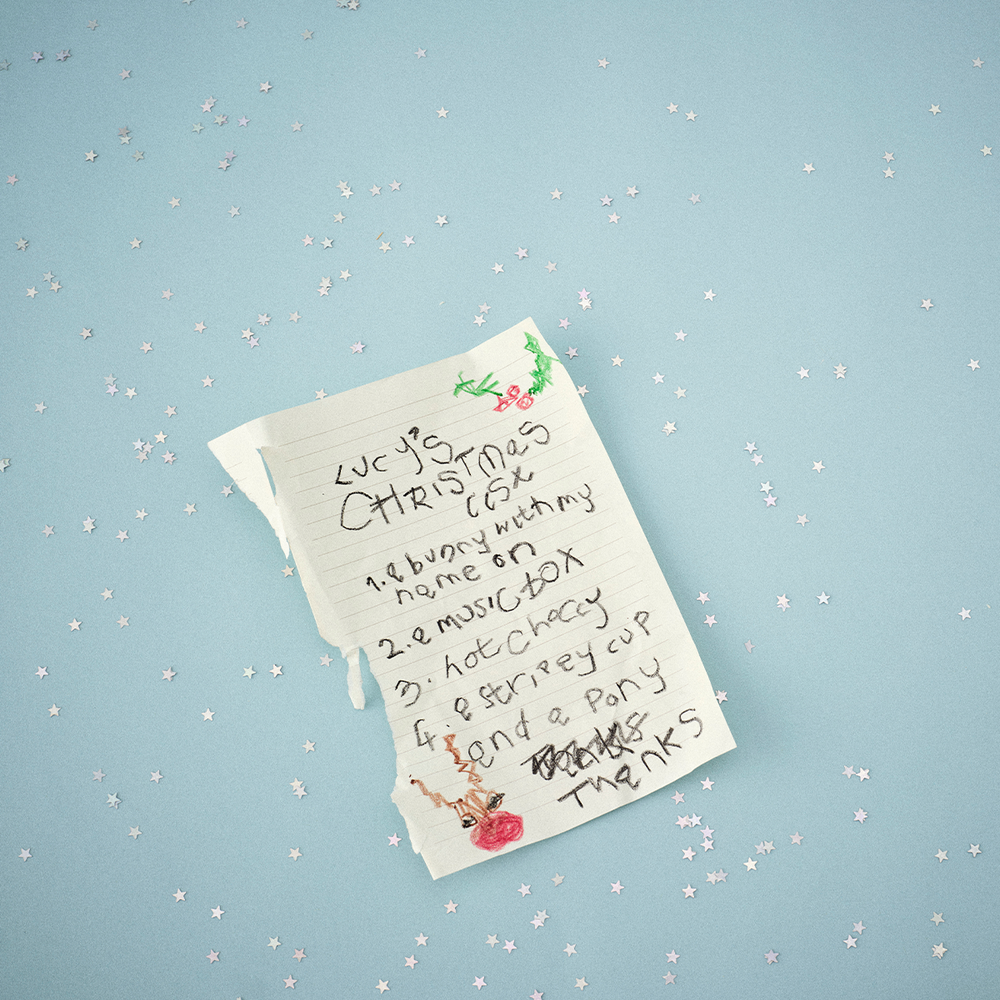 LUCY'S
CHRISTMAS
LiSt
1. a bunny with my
name on
2. a music box
3. hot choccy
4. a stripey cup
and a pony
Thanks